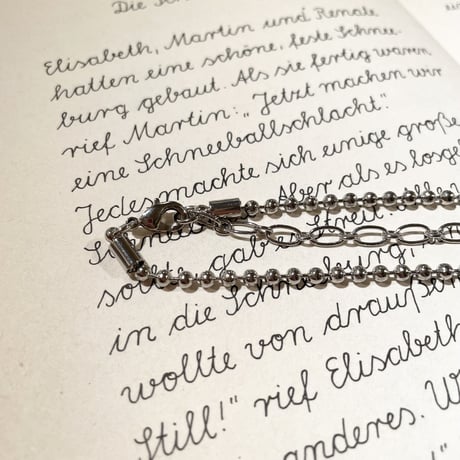 Die
Elisabeth, Martin und Renate
hatten eine schöne, feste Schnee-
burg gebaut. Als sie fertig waren,
rief Martin: „Jetzt machen wir
eine Schneeballschlacht".
Jedes machte sich einige große
Aber als es losge
gab es Streit.
in die Schneeburg,
wollte von draußen
Still!" rief Elisabeth
anderes. W